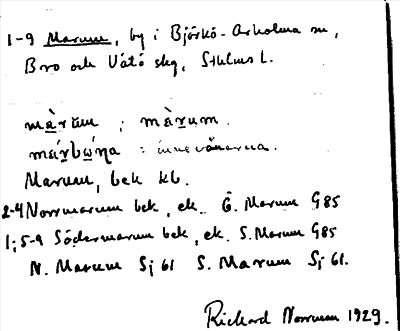 1-9 Marum, by i Björkö-Arholma sn,
Bro och Vätö skg, Sthlms l.
màrum : màrum.
márbǫ́na : innevånarna.
Marum, bek kb.
2-4 Norrmarum bek, ek. Ö. Marum G85
1; 5-9 Södermarum bek, ek. S. Marum G85
N. Marum Sj 61 S. Marum Sj 61.
Richard Norrum 1929.